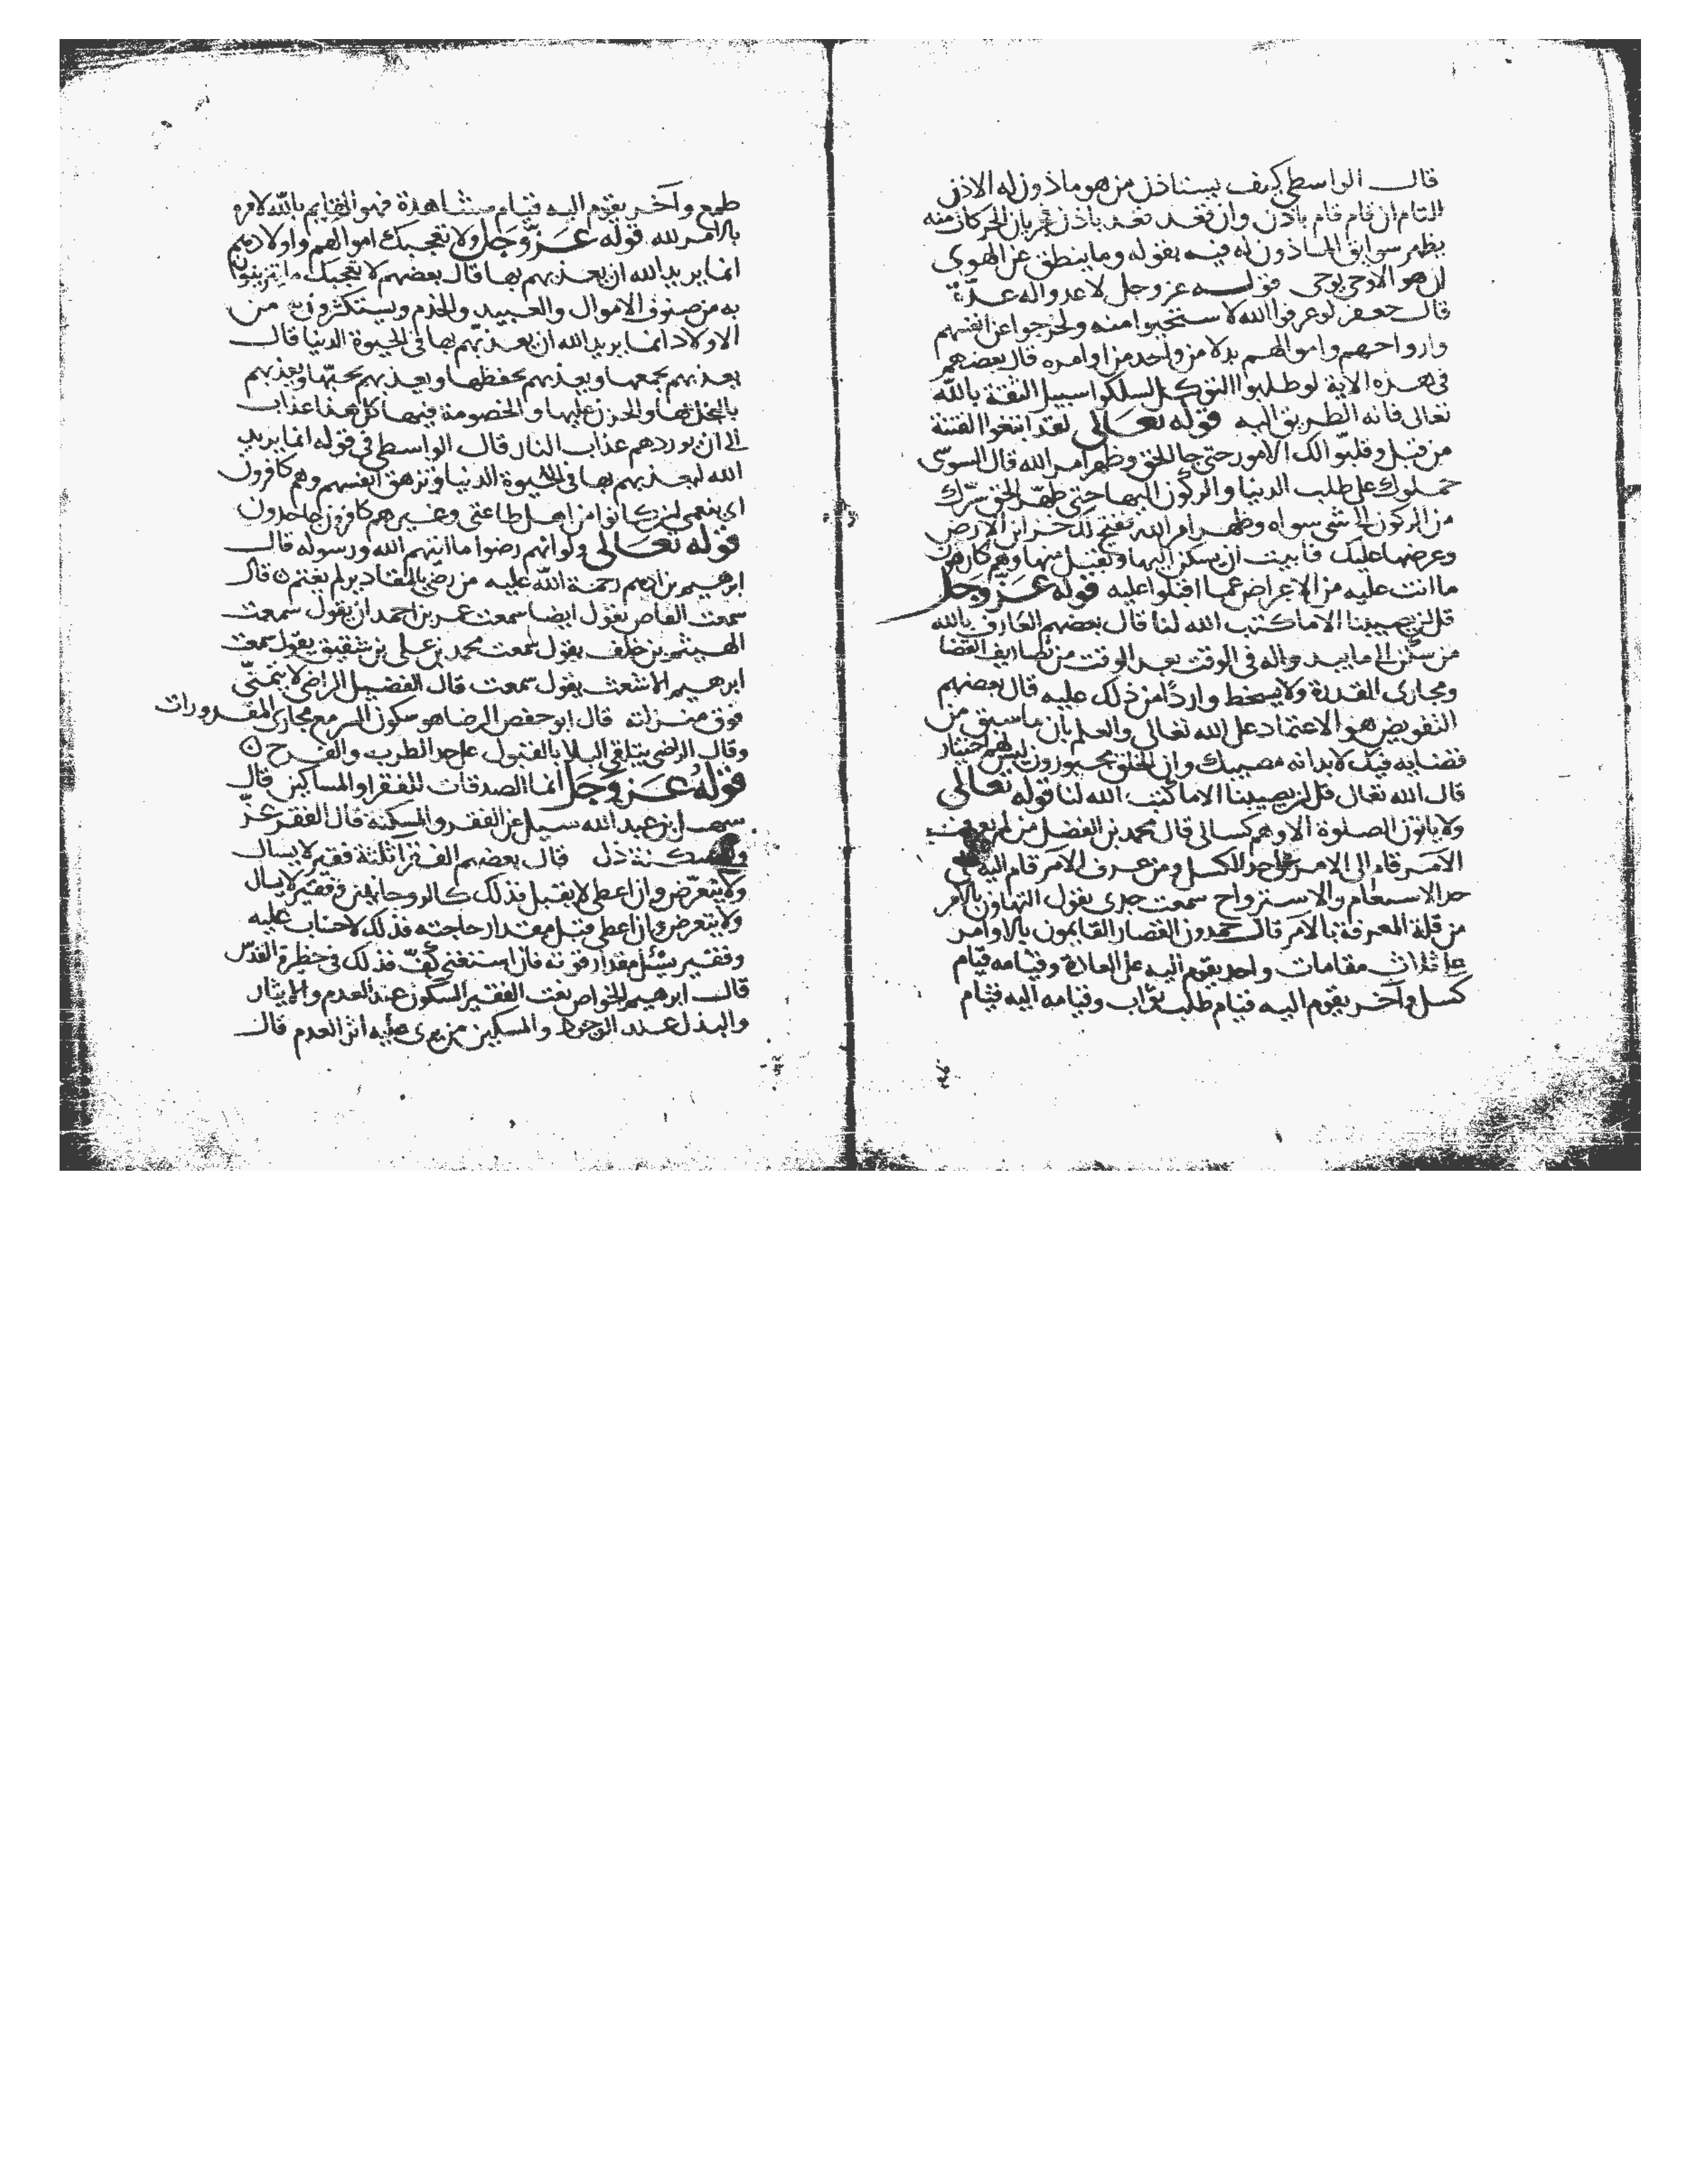 قال الواسطي كيف يستاذن من هو ماذون له الاذن
التام ان قام قام باذن وان قعد قعد باذن فجريان الحركات منه
يظهر سوابق الماذون له فيه بقوله وما ينطق عن الهوى
ان هو الا وحي يوحى قوله عز وجل لاعدوا له عدّة
قال جعفر لو عرفوا الله لاستحيوا منه ولخرجوا عن انفسهم
وارواحهم واموالهم بدلا من واحد من اوامره قال بعضهم
في هذه الاية لو طلبوا التوكل لسلكوا سبيل الثقة بالله
تعالى فانه الطريق اليه قوله تعالى لقد ابتغوا الفتنة
من قبل وقلبّوا لك الامور حتى جا الحق وظهر امر الله قال السوسى
حملوك على طلب الدنيا والركون اليها حتى طهّر الحق سرّك
من الركون الى شى سواه وظهر امر الله بفتح لك خزاين الارض
وعرضها عليك فابيت ان يسكن اليها وتقبل منها وهم كارهون
ما انت عليه من الاعراض عما اقبلوا عليه قوله عزّ وجل
قل لن يصيبنا الا ما كتب الله لنا قال بعضهم العارف بالله
من سكن الى ما يبد واله في الوقت بعد الوقت من تصاريف القضا
ومجارى القدرة ولا يسخط واردًا من ذلك عليه قال بعضهم
التفويض هو الاعتماد على الله تعالى والعلم بان ما سبق من
قضايه فيك لابد انه مصيبك وان الخلق مجبورون ليس لهم اختيار
قال الله تعالى قل لن يصيبنا الا ما كتب الله لنا قوله تعالى
ولا ياتون الصلوة الا وهم كسالى قال محمد بن الفضل من لم يعرف
الامر قام الى الامر على حد الكسل ومن عرف الامر قام اليه على
حد الاستغنام والاسترواح سمعت جدى يقول التهاون بالامر
من قلة المعرفة بالامر قال حمدون القصار القايمون بالاوامر
على ثلاث مقامات واحد يقوم اليه على العادة وقيامه قيام
كسل وآخر يقوم اليه قيام طلب ثواب وقيامه اليه قيام
طمع وآخر يقوم اليه قيام مشاهدة فهو القايم بالله لامره
بالامر لله قوله عزّ وجل ولا تعجبك اموالهم واولادهم
انما يريد الله ان يعذبهم بها قال بعضهم لا تعجبك ما يتزينون
به من صنوف الاموال والعبيد والخدم ويستكثرون من
الاولاد انما يريد الله ان يعذبّهم بها في الحيوة الدنيا قال
يعذبهم بجمعها ويعذبهم بحفظها ويعذبهم بحبّها ويعذبهم
بالبخل بها والحزن عليها والخصومة فيها كل هذا عذاب
الى ان يوردهم عذاب النار قال الواسطي في قوله انما يريد
الله ليعذبهم بها في الحيوة الدنيا وتزهق انفسهم وهم كافرون
اى بنعمى لين كانوا من اهل طاعتى وغيرهم كافرون جاحدون
قوله تعالى ولو انهم رضوا ما اتيهم الله ورسوله قال
ابرهيم بن ادهم رحمة الله عليه من رضى بالمقادير لم يغتم ٥ قال
سمعت القاص يقول ايضا سمعت عمر بن احمد ان يقول سمعت
الهيثم بن خلف يقول سمعت محمد بن على بن شقيق يقول سمعت
ابرهيم الاشعث يقول سمعت قال الفضيل الراضى لا يتمنّى
فوق منزلته قال ابو حفص الرضا هو سكون السر مع مجارى المقدورات
وقال الراضى يتلقى البلا بالقبول على حد الطرب والفرح ٥
قوله عزّ وجل انما الصدقات للفقرا والمساكين قال
سهل بن عبد الله سيل عن الفقر والمسكنة قال الفقر عزّ
والمسكنة ذل قال بعضهم الفقرآ ثلثة فقير لا يسال
ولا يتعرّض وان اعطى لا يقبل فذلك كالروحانيين وفقير لا يسال
ولا يتعرض وان اعطى قبل مقدار حاجته فذلك لا حساب عليه
وفقير يسئل مقدار قوته فان استغنى كفّ فذلك في حظرة القدّس
قال ابرهيم الخواص نعت الفقير السكون عند العدم والايثار
والبذل عند الوجود والمسكين من يرى عليه اثر العدم قال